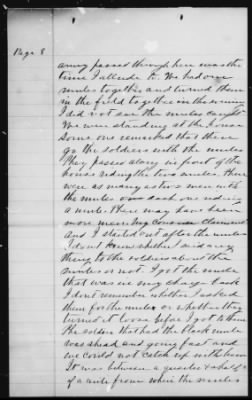 Page 8
army passed through here was the
time I allude to. We had our
mules together and turned them
in the field together in the
I did not see the mules caught
We were standing at the
some one remarked that there
go the soldiers with the mules
They passed along in front of the
house riding the two mules. There
were as many as two men with
the mules each one riding
a mule. There may have been
one more. My Claimant
and I started out after the mules
I dont know whether I said any
thing to the soldiers about the
mules or not. I got the mule
that was in my charge back
I dont remember whether I asked
them for the mules or whether they
turned it loose before I got to them
The soldier that had the black mule
was ahead and going fast and
we could not catch up with him
It was between a quarter & a half
of a mile from where the mules